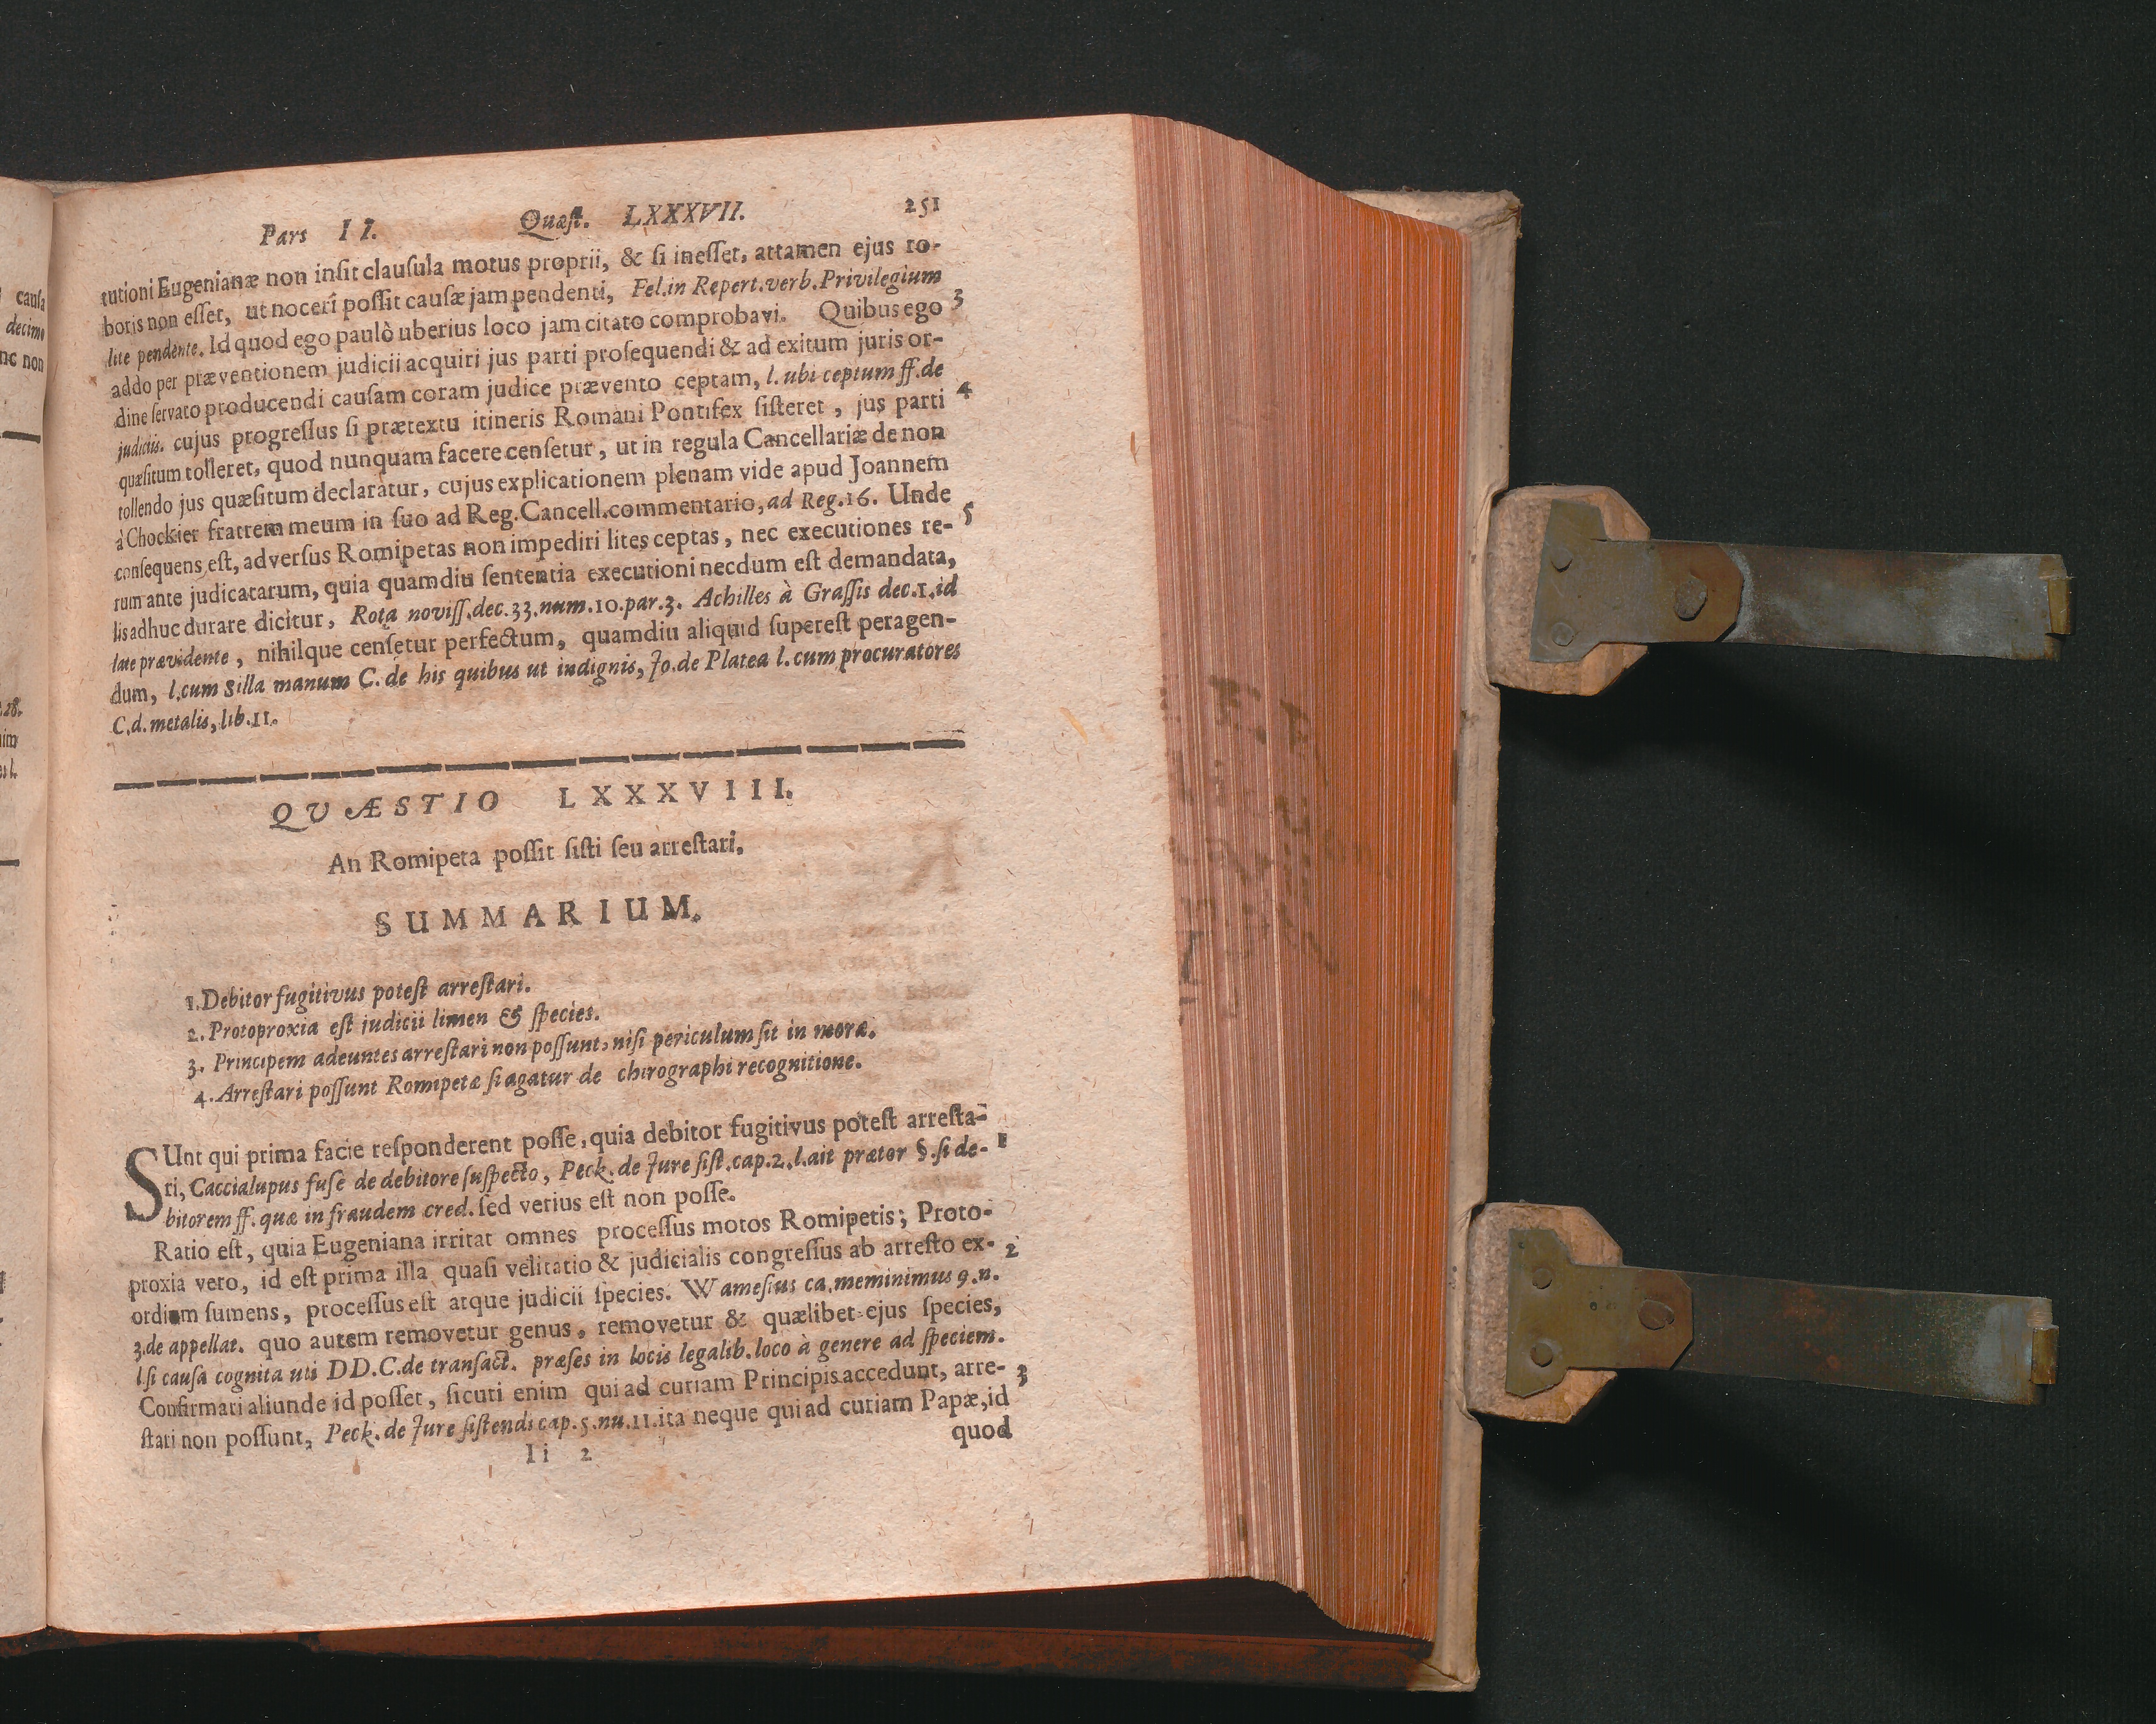 Pars II. Quæst. LXXXVII. 251
tutioni Eugenianæ non insit clausula motus proprii, & si inesset, attamen ejus ro-
boris non esset, ut noceri possit causæ jam pendenti, Fel. in Repert. verb. Privilegium
lite pendente. Id quod ego paulò uberius loco jam citato comprobavi. Quibus ego 3
addo per præventionem judicii acquiri jus parti prosequendi & ad exitum juris or-
dine servato producendi causam coram judice prævento ceptam, l. ubi ceptum ff. de
judiciis. cujus progressus si prætextu itineris Romani Pontifex sisteret, jus parti 4
quæsitum tolleret, quod nunquam facere censetur, ut in regula Cancellariæ de non
tollendo jus quæsitum declaratur, cujus explicationem plenam vide apud Joannem
à Chockier fratrem meum in suo ad Reg. Cancell. commentario, ad Reg. 16. Unde
consequens est, adversus Romipetas non impediri lites ceptas, nec executiones re- 5
rum ante judicatarum, quia quamdiu sententia executioni necdum est demandata,
lis adhuc durare dicitur, Rota noviss. dec. 33. num. 10. par. 3. Achilles à Grassis dec. 1. id
late prævidente, nihilque censetur perfectum, quamdiu aliquid superest peragen-
dum, l. cum Silla manum C. de his quibus ut indignis, Jo. de Platea l. cum procuratores
C. d. metalis, lib. 11.
QUÆSTIO LXXXVIII.
An Romipeta possit sisti seu arrestari.
SUMMARIUM.
1. Debitor fugitivus potest arrestari.
2. Protoproxia est judicii limen & species.
3. Principem adeuntes arrestari non possunt, nisi periculum sit in mora.
4. Arrestari possunt Romipetæ si agatur de chirographi recognitione.
SUnt qui prima facie responderent posse, quia debitor fugitivus potest arresta-
ri, Caccialupus fusè de debitore suspecto, Peck. de Jure sist. cap. 2. l. ait prætor §. si de- 1
bitorem ff. quæ in fraudem cred. sed verius est non posse.
Ratio est, quia Eugeniana irritat omnes processus motos Romipetis; Proto-
proxia vero, id est prima illa quasi velitatio & judicialis congressus ab arresto ex- 2
ordium sumens, processus est atque judicii species. Wamesius ca. meminimus 9. n.
3. de appellat. quo autem removetur genus, removetur & quælibet ejus species,
l. si causa cognita uti DD. C. de transact. præses in locis legalib. loco à genere ad speciem.
Confirmari aliunde id posset, sicuti enim qui ad curiam Principis accedunt, arre- 3
stari non possunt, Peck. de Jure sistendi cap. 5. nu. 11. ita neque qui ad curiam Papæ, id
Ii 2 quod
causa
decimo
nc non
28.